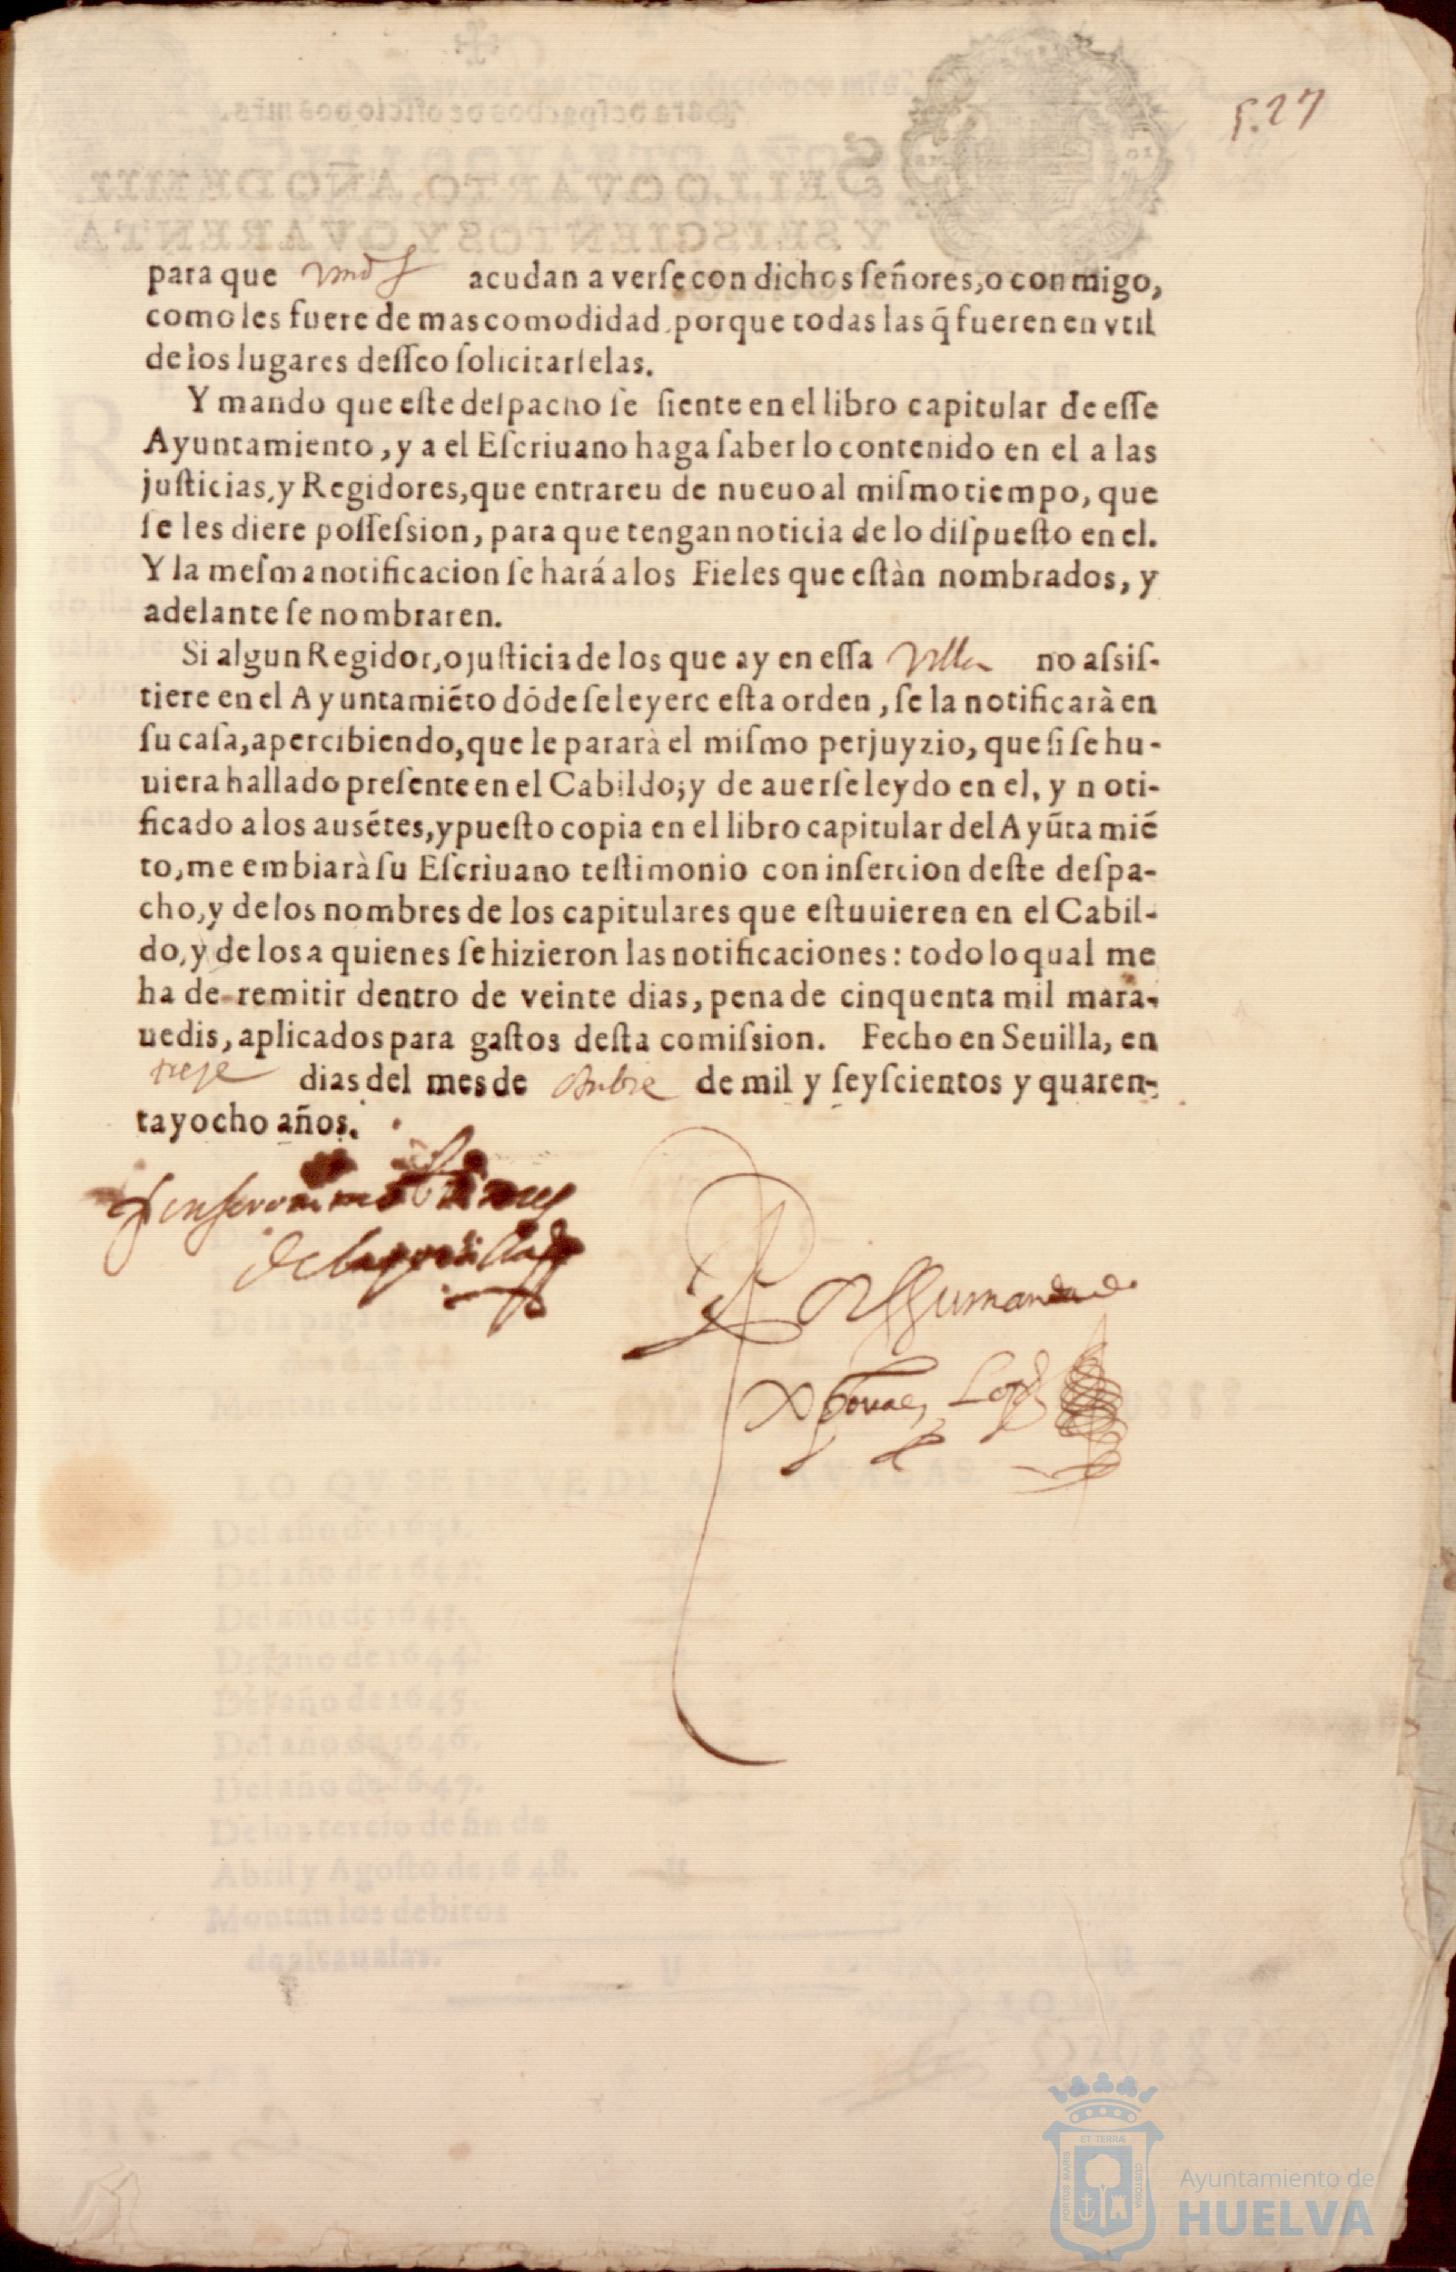 527
para que vmds acudan a verſe con dichos ſeñores, o conmigo,
como les fuere de mas comodidad, porque todas las q̃ fueren en vtil
de los lugares deſſeo ſolicitarſelas.
Y mando que eſte deſpacho ſe ſiente en el libro capitular de eſſe
Ayuntamiento, y a el Eſcriuano haga ſaber lo contenido en el a las
juſticias, y Regidores, que entrareu de nueuo al miſmo tiempo, que
ſe les diere poſſeſsion, para que tengan noticia de lo diſpueſto en el.
Y la meſma notificacion ſe hará a los Fieles que eſtàn nombrados, y
adelante ſe nombraren.
Si algun Regidor, o juſticia de los que ay en eſſa Villa no aſsiſ-
tiere en el Ayuntamiẽto dõde ſe leyere eſta orden, ſe la notificarà en
ſu caſa, apercibiendo, que le pararà el miſmo perjuyzio, que ſi ſe hu-
uiera hallado preſente en el Cabildo; y de auerſe leydo en el, y noti-
ficado a los auſẽtes, y pueſto copia en el libro capitular del Ayũtamiẽ
to, me embiarà ſu Eſcriuano teſtimonio con inſercion deſte deſpa-
cho, y de los nombres de los capitulares que eſtuuieren en el Cabil-
do, y de los a quienes ſe hizieron las notificaciones: todo lo qual me
ha de remitir dentro de veinte dias, pena de cinquenta mil mara-
uedis, aplicados para gaſtos deſta comiſsion. Fecho en Seuilla, en
treze dias del mes de otubre de mil y ſeyſcientos y quaren-
ta y ocho años.
Por ſu mandado
Lopez
LO QVE SE DEVE DE ALCAVALAS
Del año de 1641.
Del año de 1642.
Del año de 1643.
Del año de 1644.
Del año de 1645.
Del año de 1646.
Del año de 1647.
De los tercio de fin de
Abril y Agoſto de 1648.
Montan los debitos
de alcaualas.
PORTUS MARIS ET TERRÆ CUSTODIA
Ayuntamiento de
HUELVA